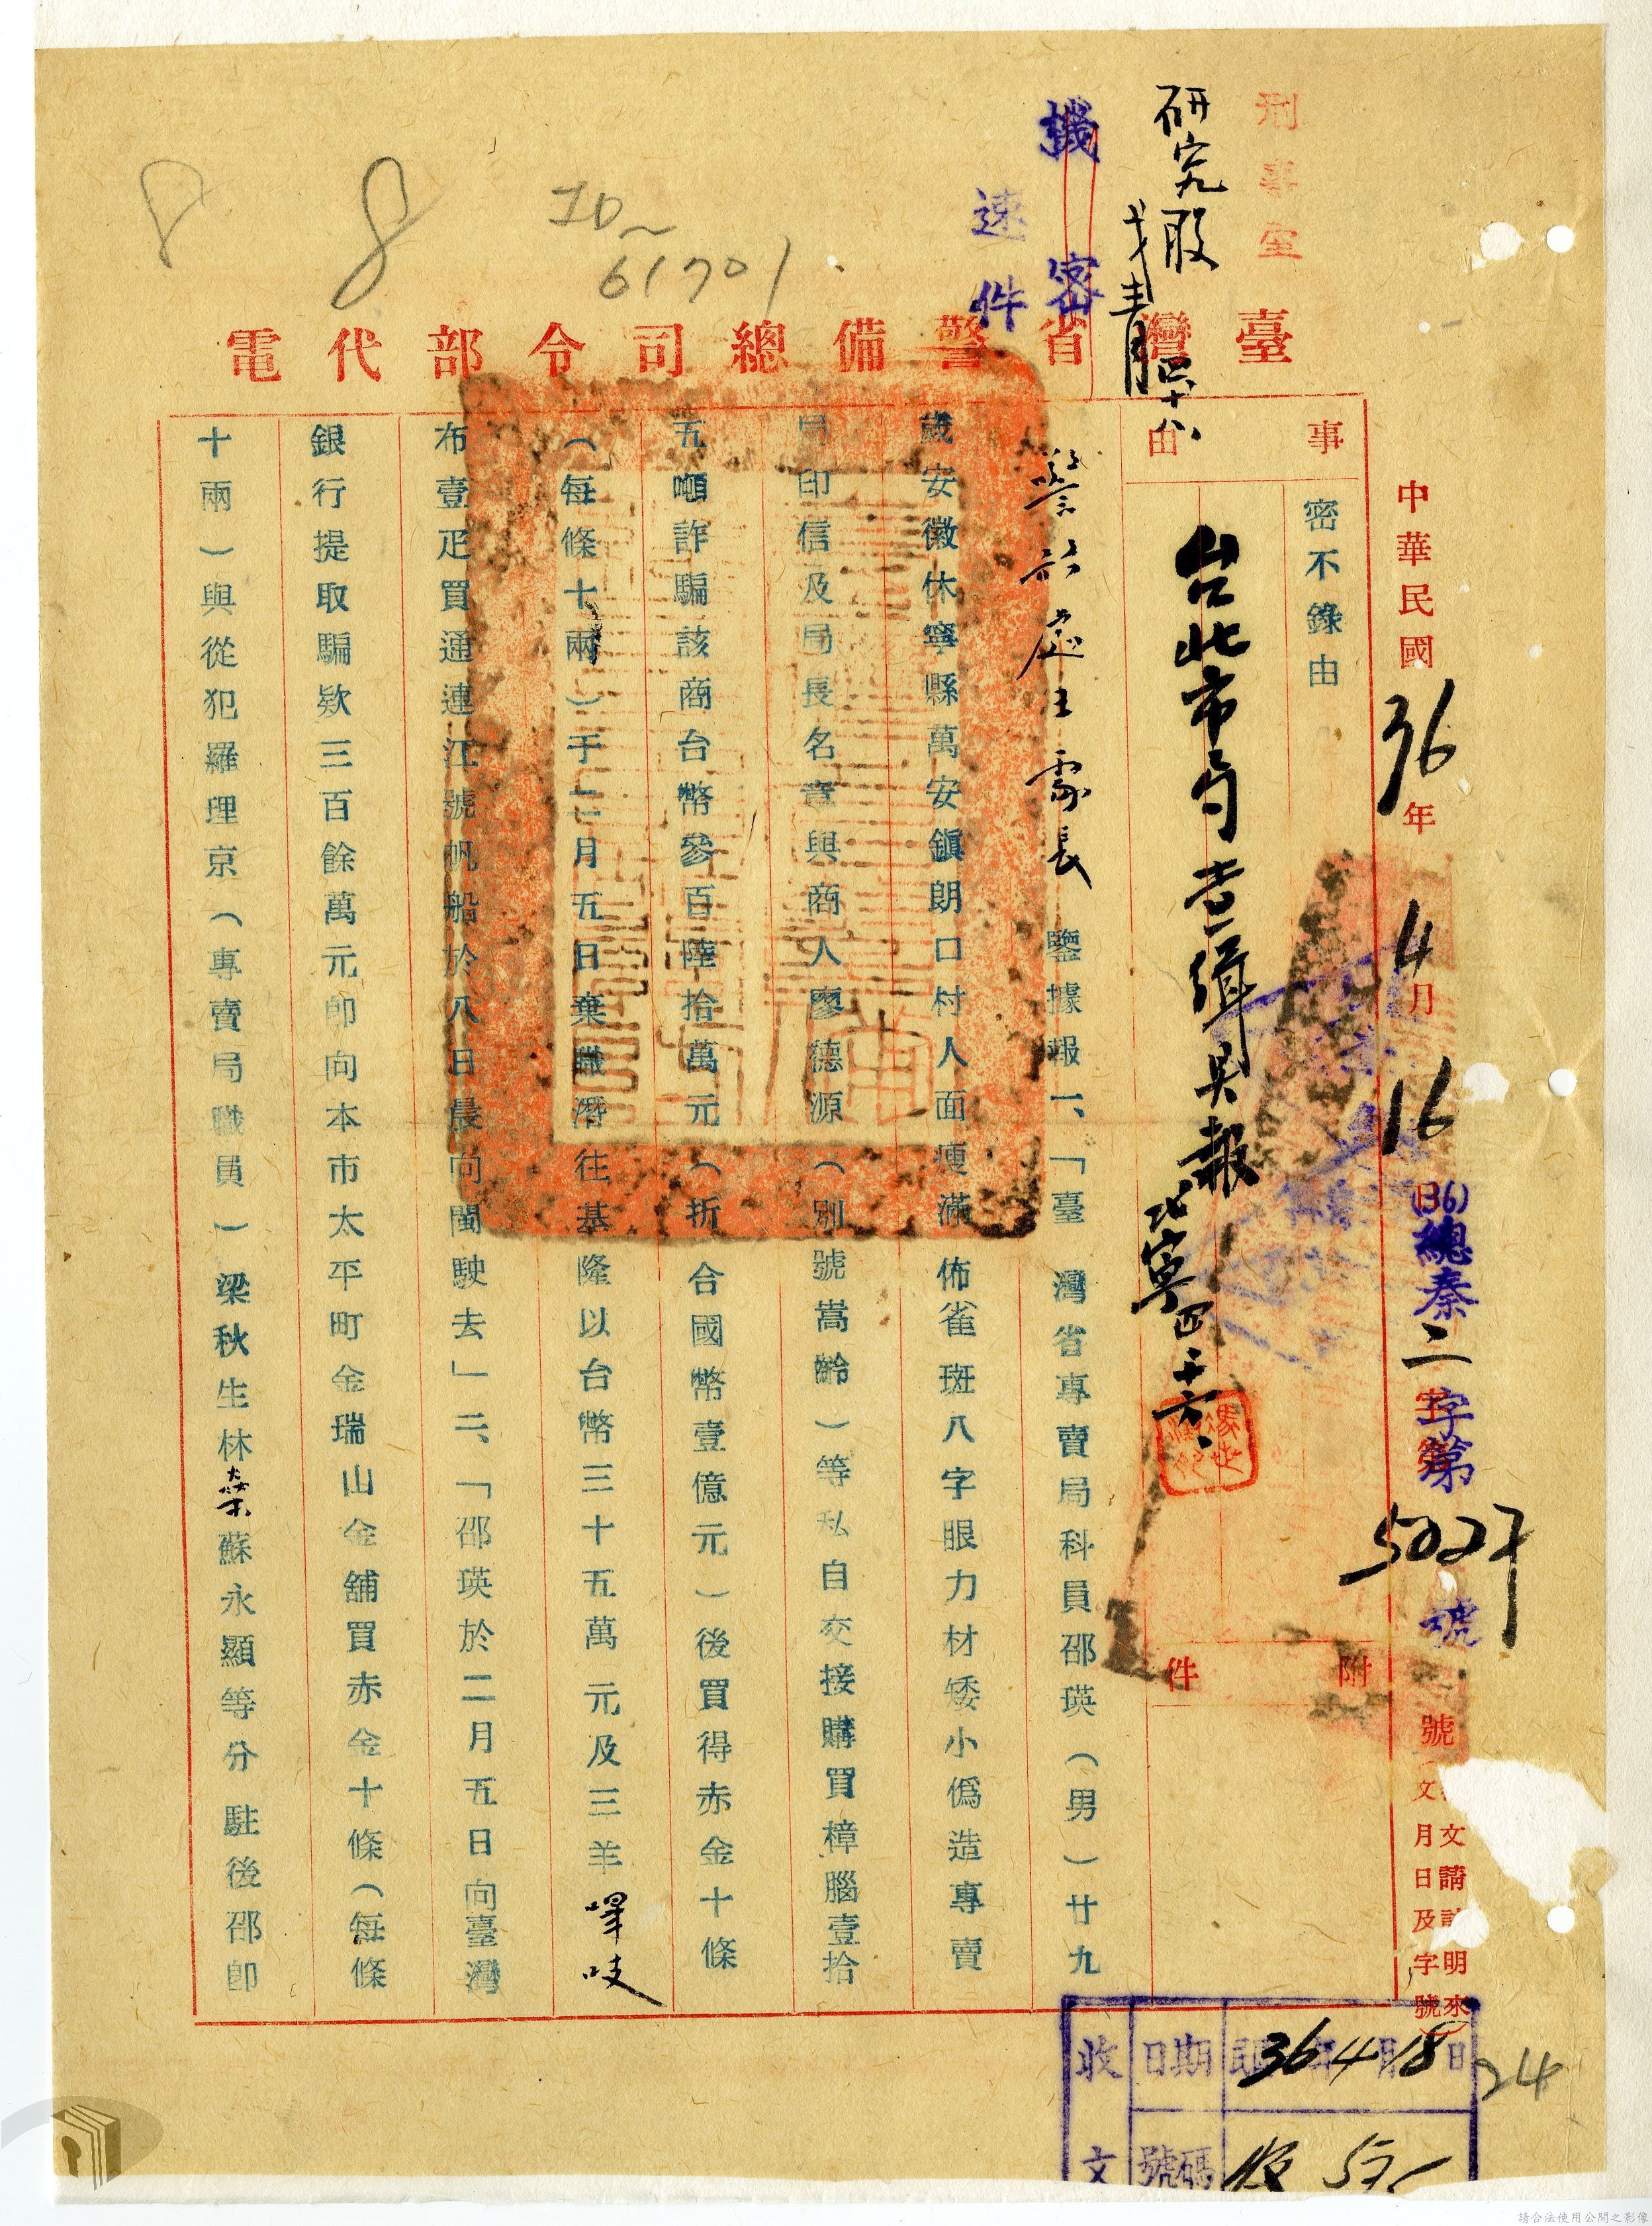 刑事室
機密
速件
61701
臺灣省警備總司令部代電
中華民國36年4月16日
(36)總秦二字第5027號
事由
密不錄由
附件
警務處王處長 鑒據報一、「臺灣省專賣局科員邵瑛（男）廿九
歲安徽休寧縣萬安鎮朗口村人面瘦滿佈雀斑八字眼力材矮小僞造專賣
局印信及局長名章與商人廖德源（別號嵩齡）等私自交接購買樟腦壹拾
五噸詐騙該商台幣參百陸拾萬元（折合國幣壹億元）後買得赤金十條
（每條十兩）于二月五日棄職潛往基隆以台幣三十五萬元及三羊嗶吱
布壹疋買通連江號帆船於八日晨向閩駛去」二、「邵瑛於二月五日向臺灣
銀行提取騙欵三百餘萬元卽向本市太平町金瑞山金舖買赤金十條（每條
十兩）與從犯羅理京（專賣局職員）梁秋生林燊蘇永顯等分駐後邵卽
收文
日期 36年4月18日
號碼
24
請合法使用公開之影像